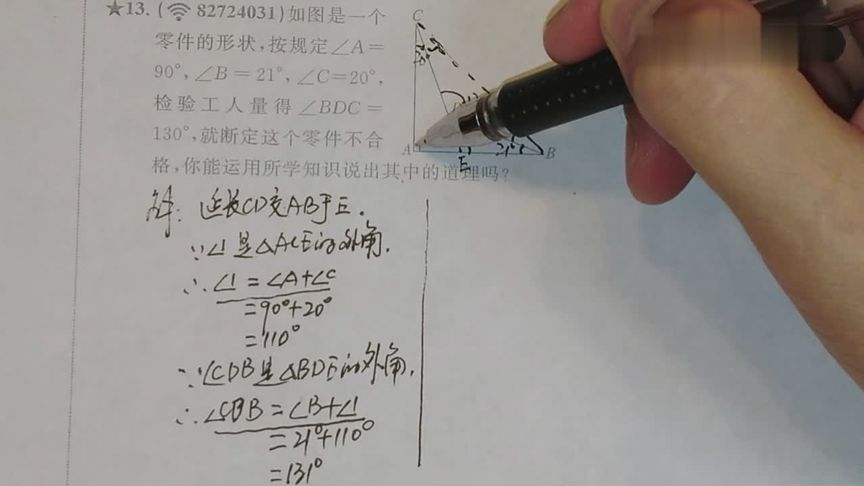 ★13. (82724031)如图是一个
零件的形状,按规定∠A=
90°,∠B=21°,∠C=20°,
检验工人量得∠BDC=
130°,就断定这个零件不合
格,你能运用所学知识说出其中的道理吗?
C
A
E
21°
B
解: 延长CD交AB于E.
∵∠1是△ACE的外角.
∴∠1=∠A+∠C
=90°+20°
=110°
∵∠CDB是△BDE的外角.
∴∠CDB=∠B+∠1
=21°+110°
=131°